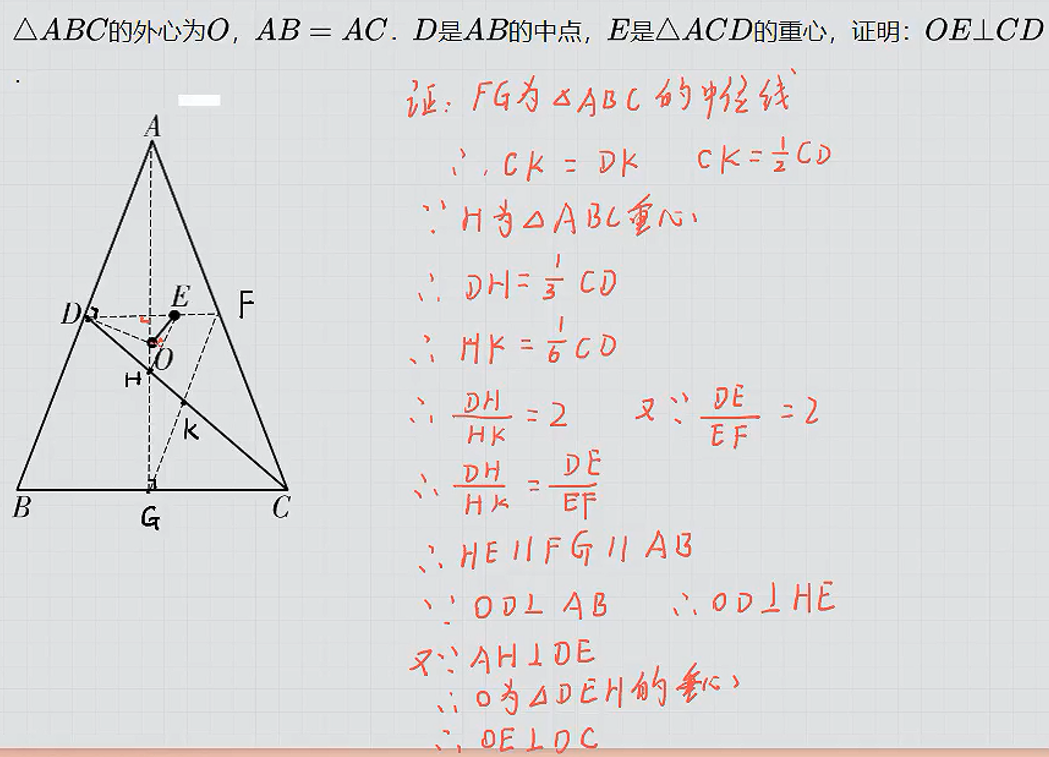 △ABC的外心为O，AB = AC．D是AB的中点，E是△ACD的重心，证明：OE⊥CD
.
证：FG为△ABC的中位线
∴CK = DK CK=1/2 CD
∵H为△ABC重心
∴DH=1/3 CD
∴HK=1/6 CD
∴DH/HK=2 又∵DE/EF=2
∴DH/HK=DE/EF
∴HE∥FG∥AB
∵OD⊥AB ∴OD⊥HE
又∵AH⊥DE
∴O为△DEH的垂心
∴OE⊥DC
A
D
E
F
O
H
K
B
G
C